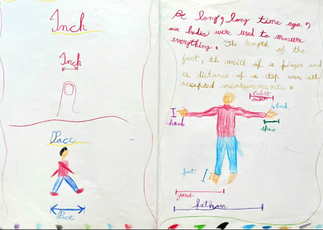 Inch
Inch
Pace
Pace
A long, long time ago,
our bodies were used to measure
everything. The length of the
foot, the width of a finger and
the distance of a step were all
accepted measurements.
Cubit
hand
span
foot
yard
fathom